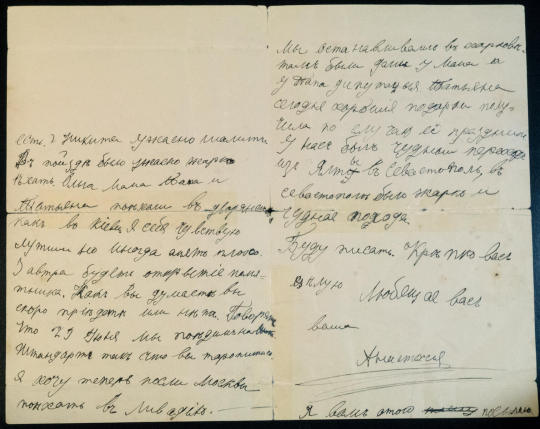 Никита ужасно
Въ поѣздѣ было ужасно жарко
ѣхать. Ольга Мама Папа и
Татьяна поехали въ
Какъ въ Кіевѣ я себя чувствую
лутши но иногда опять плохо.
Завтра будетъ открытіе помя-
тника. Какъ вы думаете вы
скоро пріѣдете или нѣтъ. Говорятъ
что 29 Июня мы на
Штандартъ такъ что вы
я хочу теперь посли Москвы
поѣхать въ Ливадію.
Мы останавливались въ Харьковѣ
тамъ были у Мама и
у Папа депутацыя. Татьяна
сегодня хорошія подарки полу-
чила по случаю её праздника
У насъ былъ чудный переездъ
изъ Ялты въ Севастополь, въ
Севастополѣ было жарко и
чудная погода.
Буду писать. Крѣпко васъ
цѣлую Любящая васъ
ваша
Анастасія
Я вамъ этого посылаю